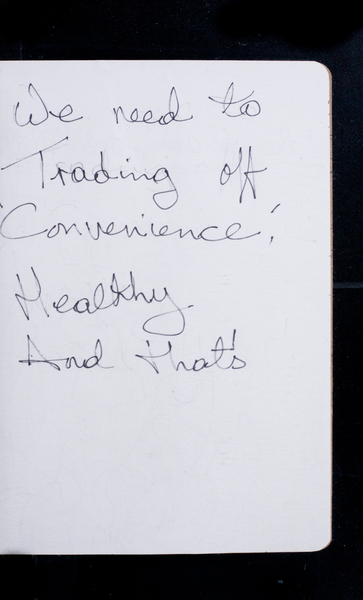 We need to
Trading off
'Convenience'.
Healthy.
And that's